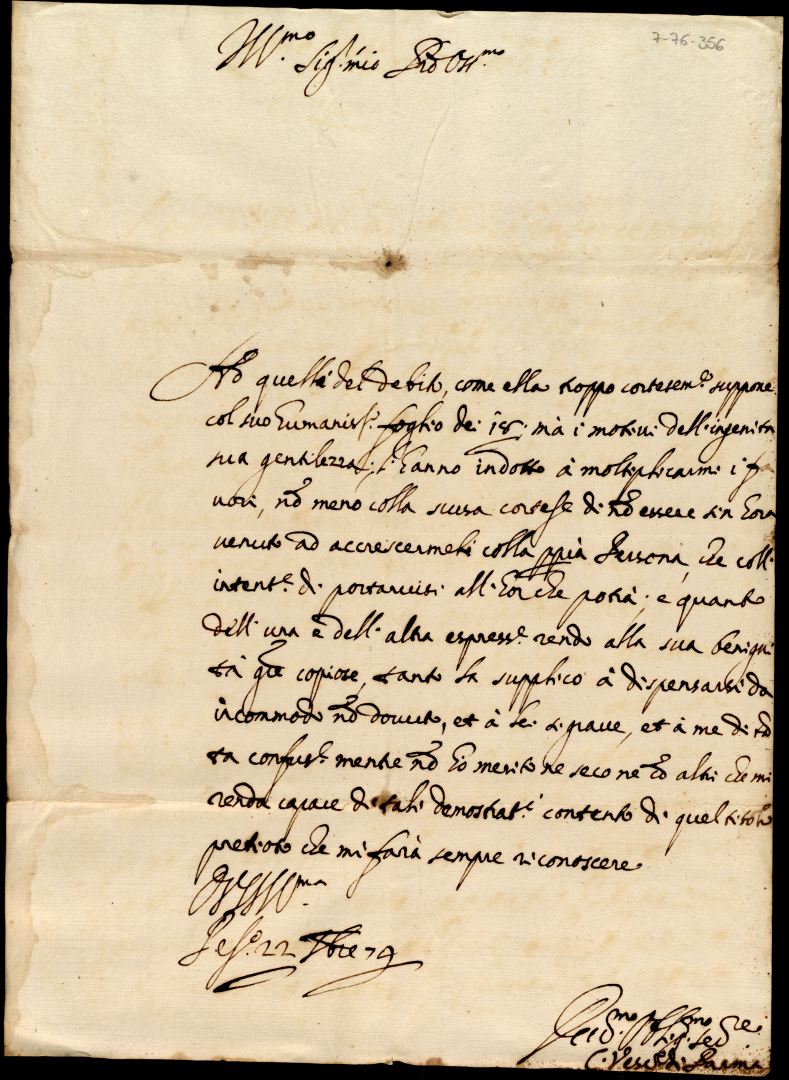 7-76-356
Ill.mo
Sig.r mio P.ron Oss.mo
Nõ quelli del debito, come ella troppo cortesem.te suppone
col suo humaniss.o foglio de i 18; mà i motivi dell'ingenita
sua gentilezza l'hanno indotto à moltiplicarmi i fa
vori, nõ meno colla scusa cortese di nõ essere sin hora
venuto ad accrescermeli colla ppria Persona, che coll'
intent.e di portarvisi all'hor che potrà; e quanto
dell'una e dell'altra espress.e rendo alla sua benigni
tà gr̃e copiose, tanto la supplico à dispensarsi da
incommodo nõ dovuto, et à lei sì grave, et à me di
ta confus.e mentre nõ ho merito ne seco ne cõ altri che mi
renda capace di tali demostrat.i contento di quel titolo
pretioso che mi farà sempre riconoscere
V.S. Ill.ma
22 7bre 79
C. Vesc.o di Parma